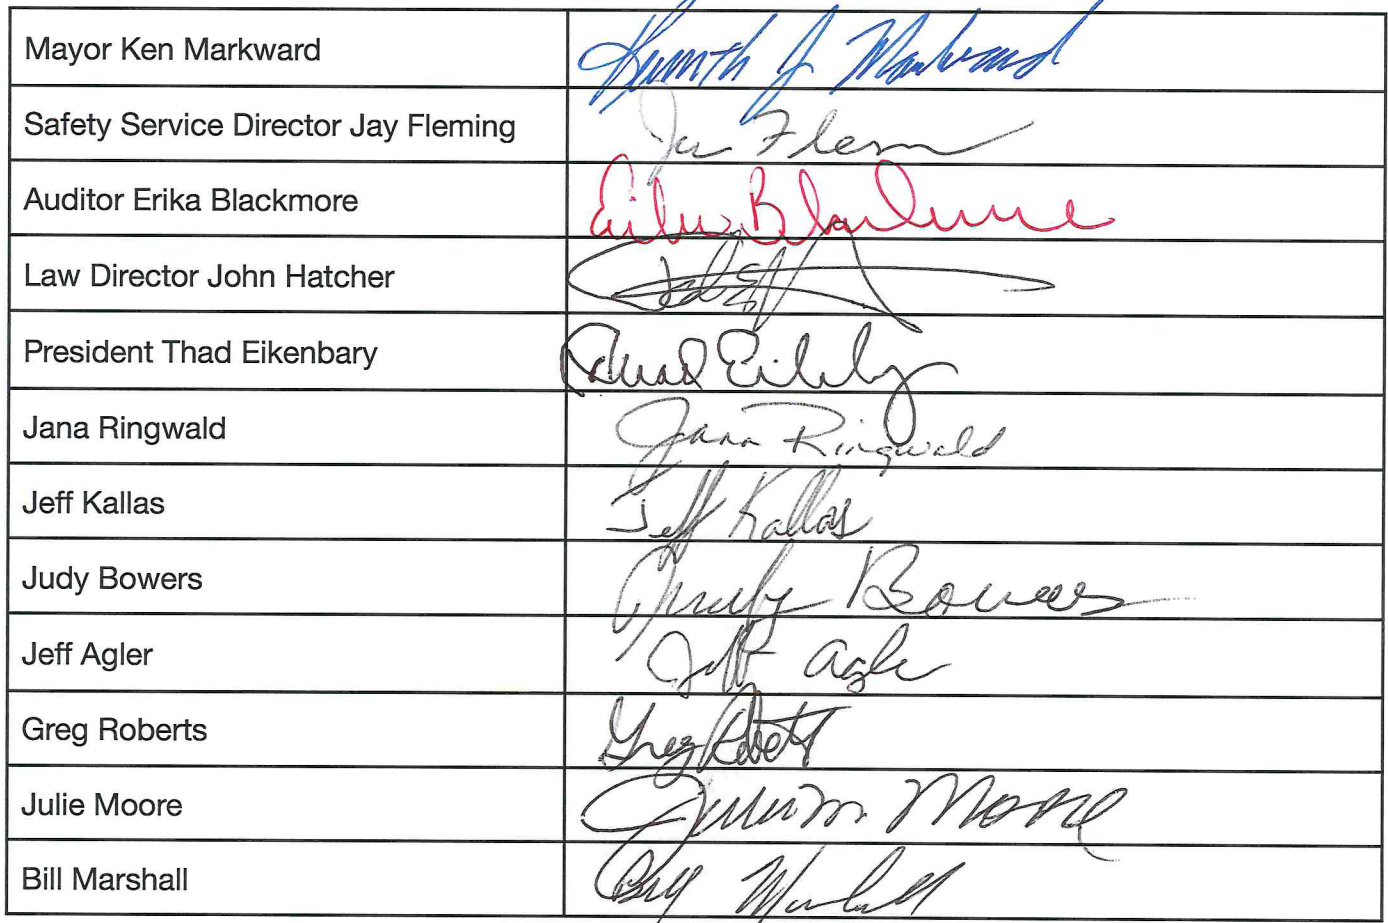 Mayor Ken Markward Kenneth J Markward
Safety Service Director Jay Fleming Jay Flem
Auditor Erika Blackmore Erika Blackmore
Law Director John Hatcher
President Thad Eikenbary Thad Eikenbary
Jana Ringwald Jana Ringwald
Jeff Kallas Jeff Kallas
Judy Bowers Judy Bowers
Jeff Agler Jeff Agler
Greg Roberts Greg Roberts
Julie Moore Julie M. Moore
Bill Marshall Bill Marshall